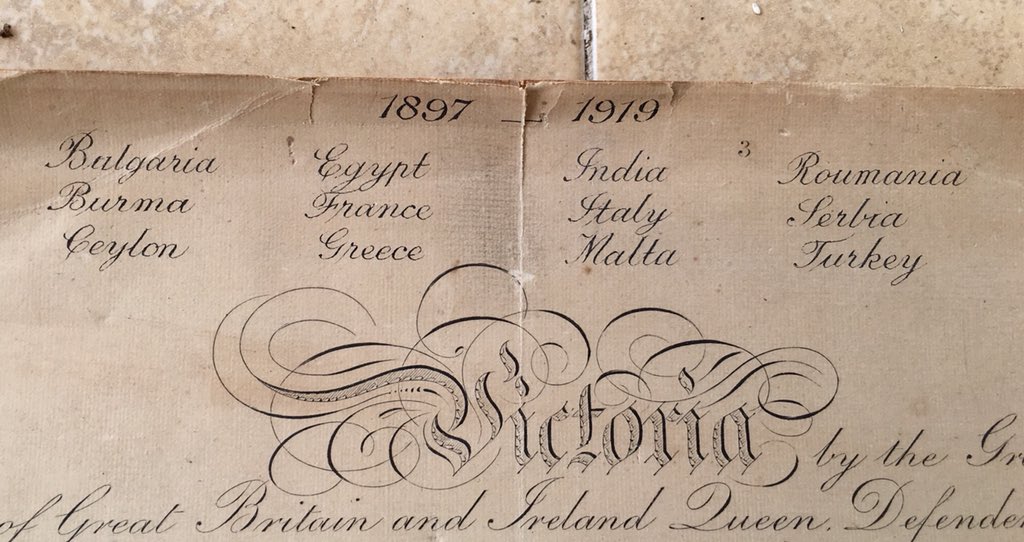 1897 — 1919
3
Bulgaria Egypt India Roumania
Burma France Italy Serbia
Ceylon Greece Malta Turkey
Victoria by the Gr
of Great Britain and Ireland Queen. Defende